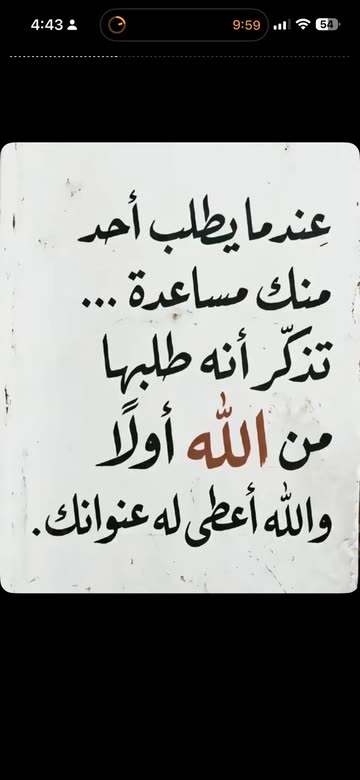 4:43
9:59
54
عِندما يطلب أحد
منك مساعدة ...
تذكّر أنه طلبها
من الله أولًا
والله أعطى له عنوانك.